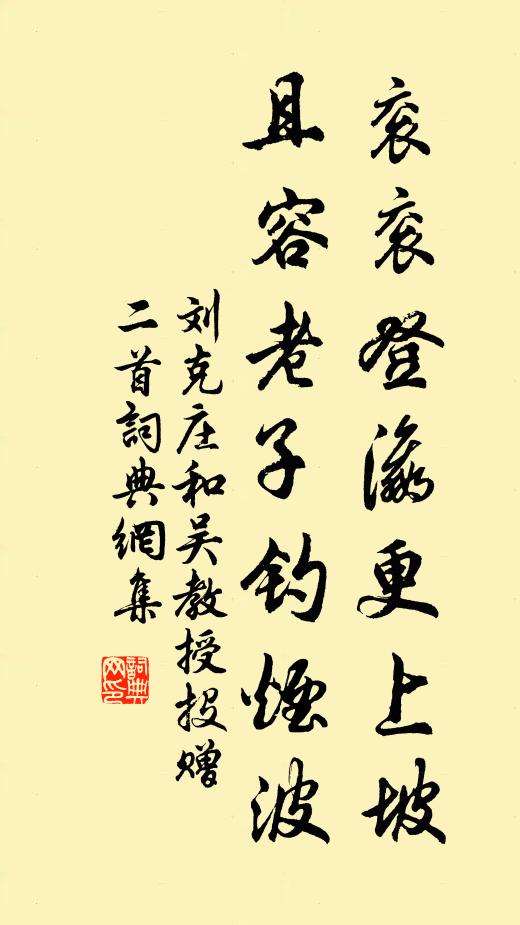 衮衮登瀛更上坡
且容老子钓烟波
刘克庄和吴教授投赠
二首詞典網集
詞典网印